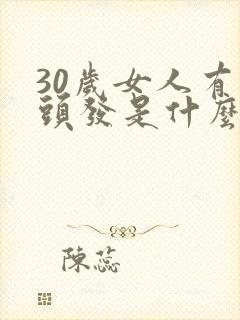 30歲女人有
頭發是什麼
陳蕊